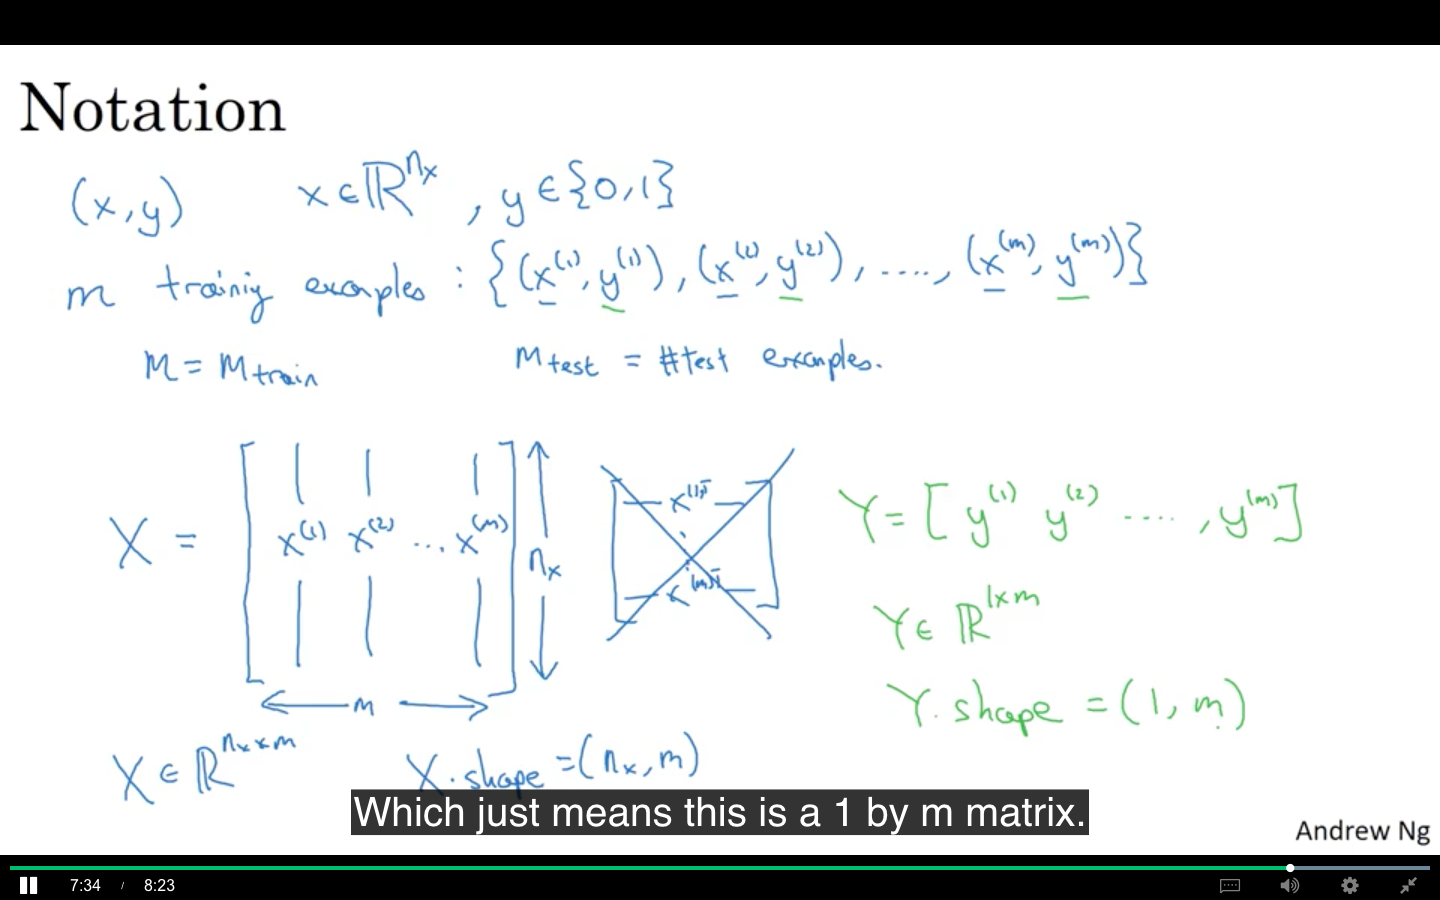 Notation
(x,y) x∈ℝ^{n_x}, y∈{0,1}
m trainiy examples : {(x^{(1)}, y^{(1)}), (x^{(2)}, y^{(2)}), ...., (x^{(m)}, y^{(m)})}
M = M_{train} M_{test} = #test examples.
X = [x^{(1)} x^{(2)} ... x^{(m)}] n_x
m
x^{(1)T}
⋮
x^{(m)T}
Y = [y^{(1)} y^{(2)} ...., y^{(m)}]
Y∈ ℝ^{1×m}
Y.shape = (1, m)
X∈ℝ^{n_x×m} X.shape = (n_x, m)
Which just means this is a 1 by m matrix.
Andrew Ng
7:34 / 8:23